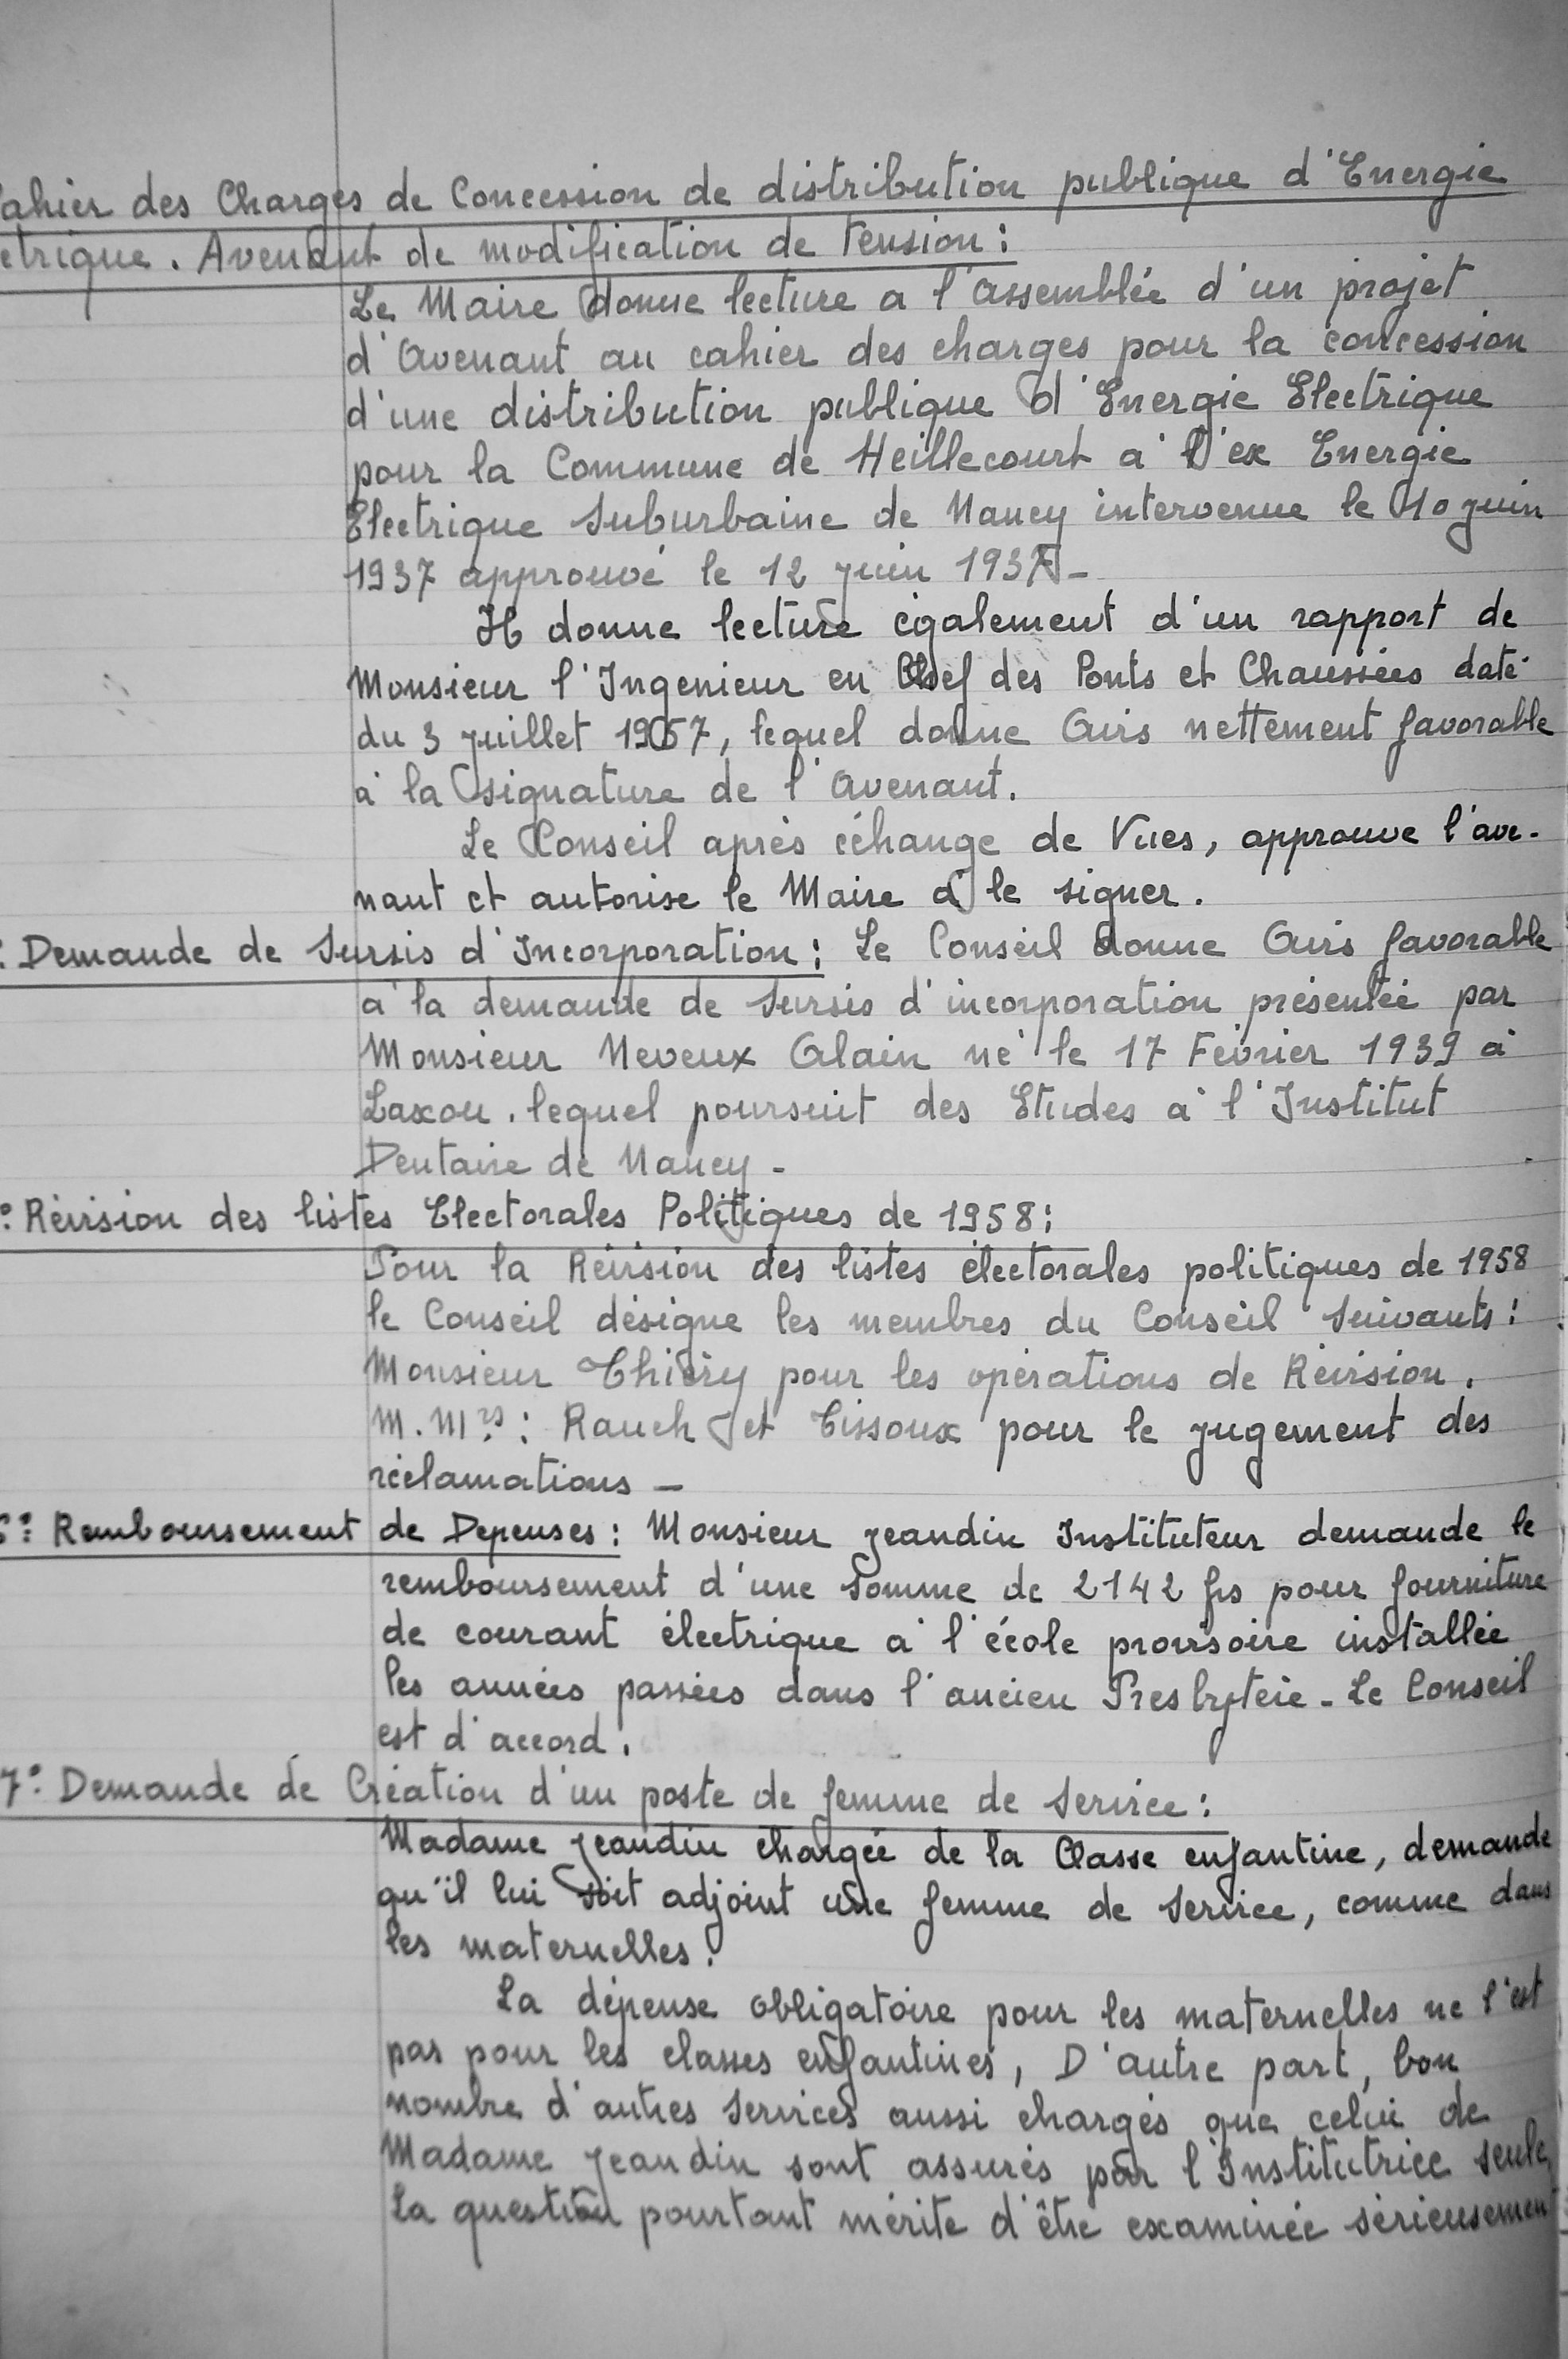 ahier des Charges de Concession de distribution publique d'Energie
ctrique. Avenant de modification de tension :
Le Maire donne lecture a l'assemblée d'un projet
d'Avenant au cahier des charges pour la concession
d'une distribution publique d'Energie Electrique
pour la Commune de Heillecourt à l'ex Energie
Electrique Suburbaine de Nancy intervenue le 10 juin
1937 approuvé le 12 juin 1937 -
Il donne lecture également d'un rapport de
Monsieur l'Ingenieur en Chef des Ponts et Chaussées daté
du 3 juillet 1957, lequel donne Avis nettement favorable
à la signature de l'Avenant.
Le Conseil après échange de Vues, approuve l'ave-
nant et autorise le Maire à le signer.
: Demande de Sursis d'Incorporation : Le Conseil donne Avis favorable
à la demande de sursis d'incorporation présentée par
Monsieur Neveux Alain né le 17 Février 1939 à
Laxou. lequel poursuit des Etudes à l'Institut
Dentaire de Nancy -
°: Révision des listes Electorales Politiques de 1958 :
Pour la Révision des listes électorales politiques de 1958
le Conseil désigne les membres du Conseil suivants :
Monsieur Thiéry pour les opérations de Révision.
M. Mrs : Rauch et Tissoux pour le jugement des
réclamations -
6°: Remboursement de Depenses : Monsieur Jeandin Instituteur demande le
remboursement d'une somme de 2142 frs pour fourniture
de courant électrique à l'école provisoire installée
les années passées dans l'ancien Presbytère - Le Conseil
est d'accord.
7°: Demande de Création d'un poste de femme de service :
Madame Jeandin chargée de la Classe enfantine, demande
qu'il lui soit adjoint une femme de service, comme dans
les maternelles.
La dépense obligatoire pour les maternelles ne l'est
pas pour les classes enfantines, D'autre part, bon
nombre d'autres services aussi chargés que celui de
Madame Jeandin sont assurés par l'Institutrice seule,
La question pourtant mérite d'être examinée sérieusement